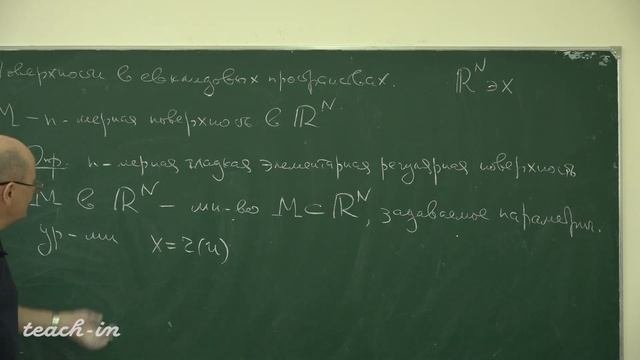 Поверхности в евклидовых пространствах. ℝᴺ ∋ x
M – n-мерная поверхность в ℝᴺ
Опр. n-мерная гладкая элементарная регулярная поверхность
M в ℝᴺ – мн-во M ⊂ ℝᴺ, задаваемое параметрич.
ур-ми x = r(u)
teach-in